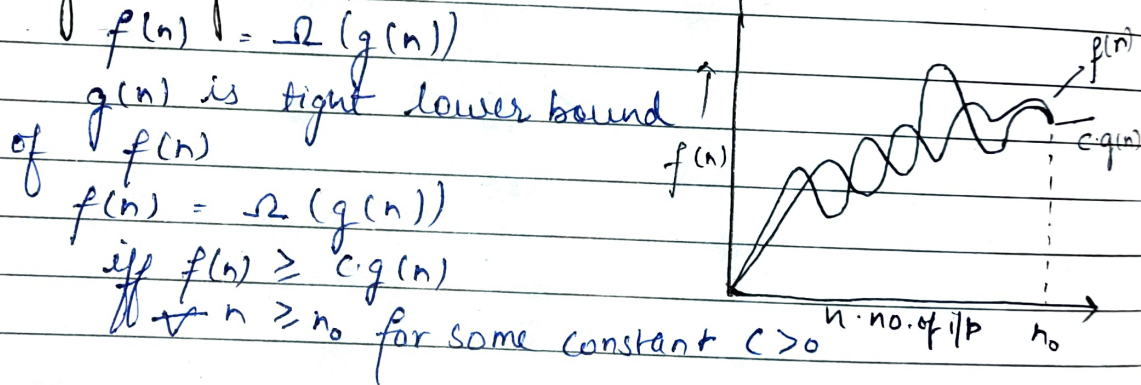 f(n) = Ω (g(n))
g(n) is tight lower bound
of f(n)
f(n) = Ω (g(n))
iff f(n) ≥ c.g(n)
∀ n ≥ n₀ for some constant c >0
f(n)
f(n)
c.g(n)
n. no. of i/p
n₀